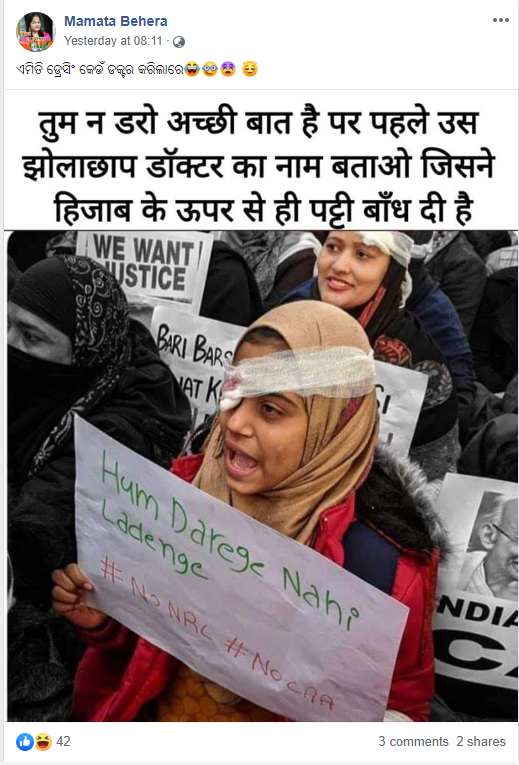 Mamata Behera
Yesterday at 08:11
ଏମିତି ଡ୍ରେସିଂ କେଉଁ ଡକ୍ଟର କରିଲାରେ😂🤓😈 😇
तुम न डरो अच्छी बात है पर पहले उस
झोलाछाप डॉक्टर का नाम बताओ जिसने
हिजाब के ऊपर से ही पट्टी बाँध दी है
WE WANT
JUSTICE
BARI BARS
AT K
SI
Hum Darege Nahi
Ladenge
# No NRC # No CAA
NDIA
CA
42
3 comments 2 shares